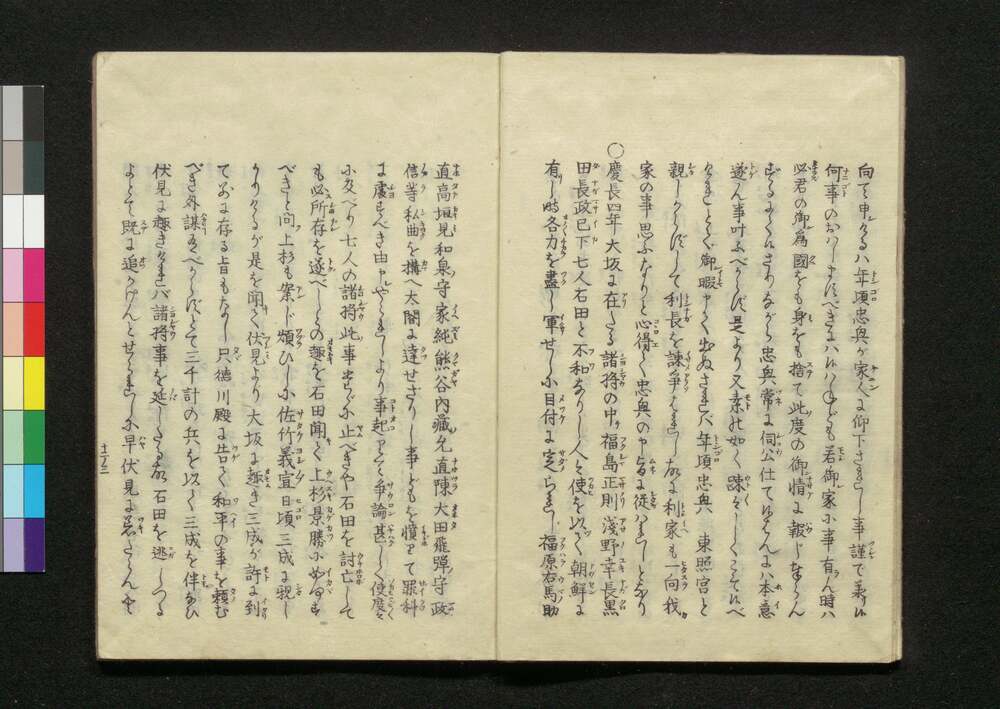 向て申ける八年頃忠興が家人に仰下されし事謹で承りぬ
何事のおはしまさずべきには候はねども若御家に事有ん時ハ
必君の御為國をも身をも捨て此度の御情に報じ奉らん
さりながら忠興常に伺公仕てゆはんにハ本意
遂ん事叶ふべからず是より又素の如く疎々しくこそ候べ
けれとて御暇申て出ぬされバ年頃忠興 東照宮と
親しからずして利長を諫争はれし故に利家も一向我
家の事思ふなりと心得て忠興の申旨に従はれしとなり
○慶長四年大坂に在ける諸将の中福島正則淺野幸長黒
田長政已下七人石田と不和なりし人と使を以て朝鮮に
有し時各力を盡し軍せしに目付に定らし福原右馬助
直高垣見和泉守家純熊谷内藏允直陳大田飛騨守政
信等私曲を搆へ太閤に達せざりし事どもを憤て罪科
に處すべき由申やられしより事起りて争論甚しく使度々
に及べり七人の諸将此事出らずに止べきや石田を討亡して
も必所存を遂べしとの趣を石田聞て上杉景勝に如何す
べきと問上杉も案じ煩ひしに佐竹義宣日頃三成に親し
かりけるが是を聞て伏見より大坂に趣き三成が許に到
て別に存る旨もなし只徳川殿に告て和平の事を頼む
べき外謀有べからずとて三千計の兵を以て三成を伴なひ
伏見に趣きければ諸将事を延したる故石田を逃しつる
よとて既に追かけんとせられしに早伏見に着たらんを
十ノ二